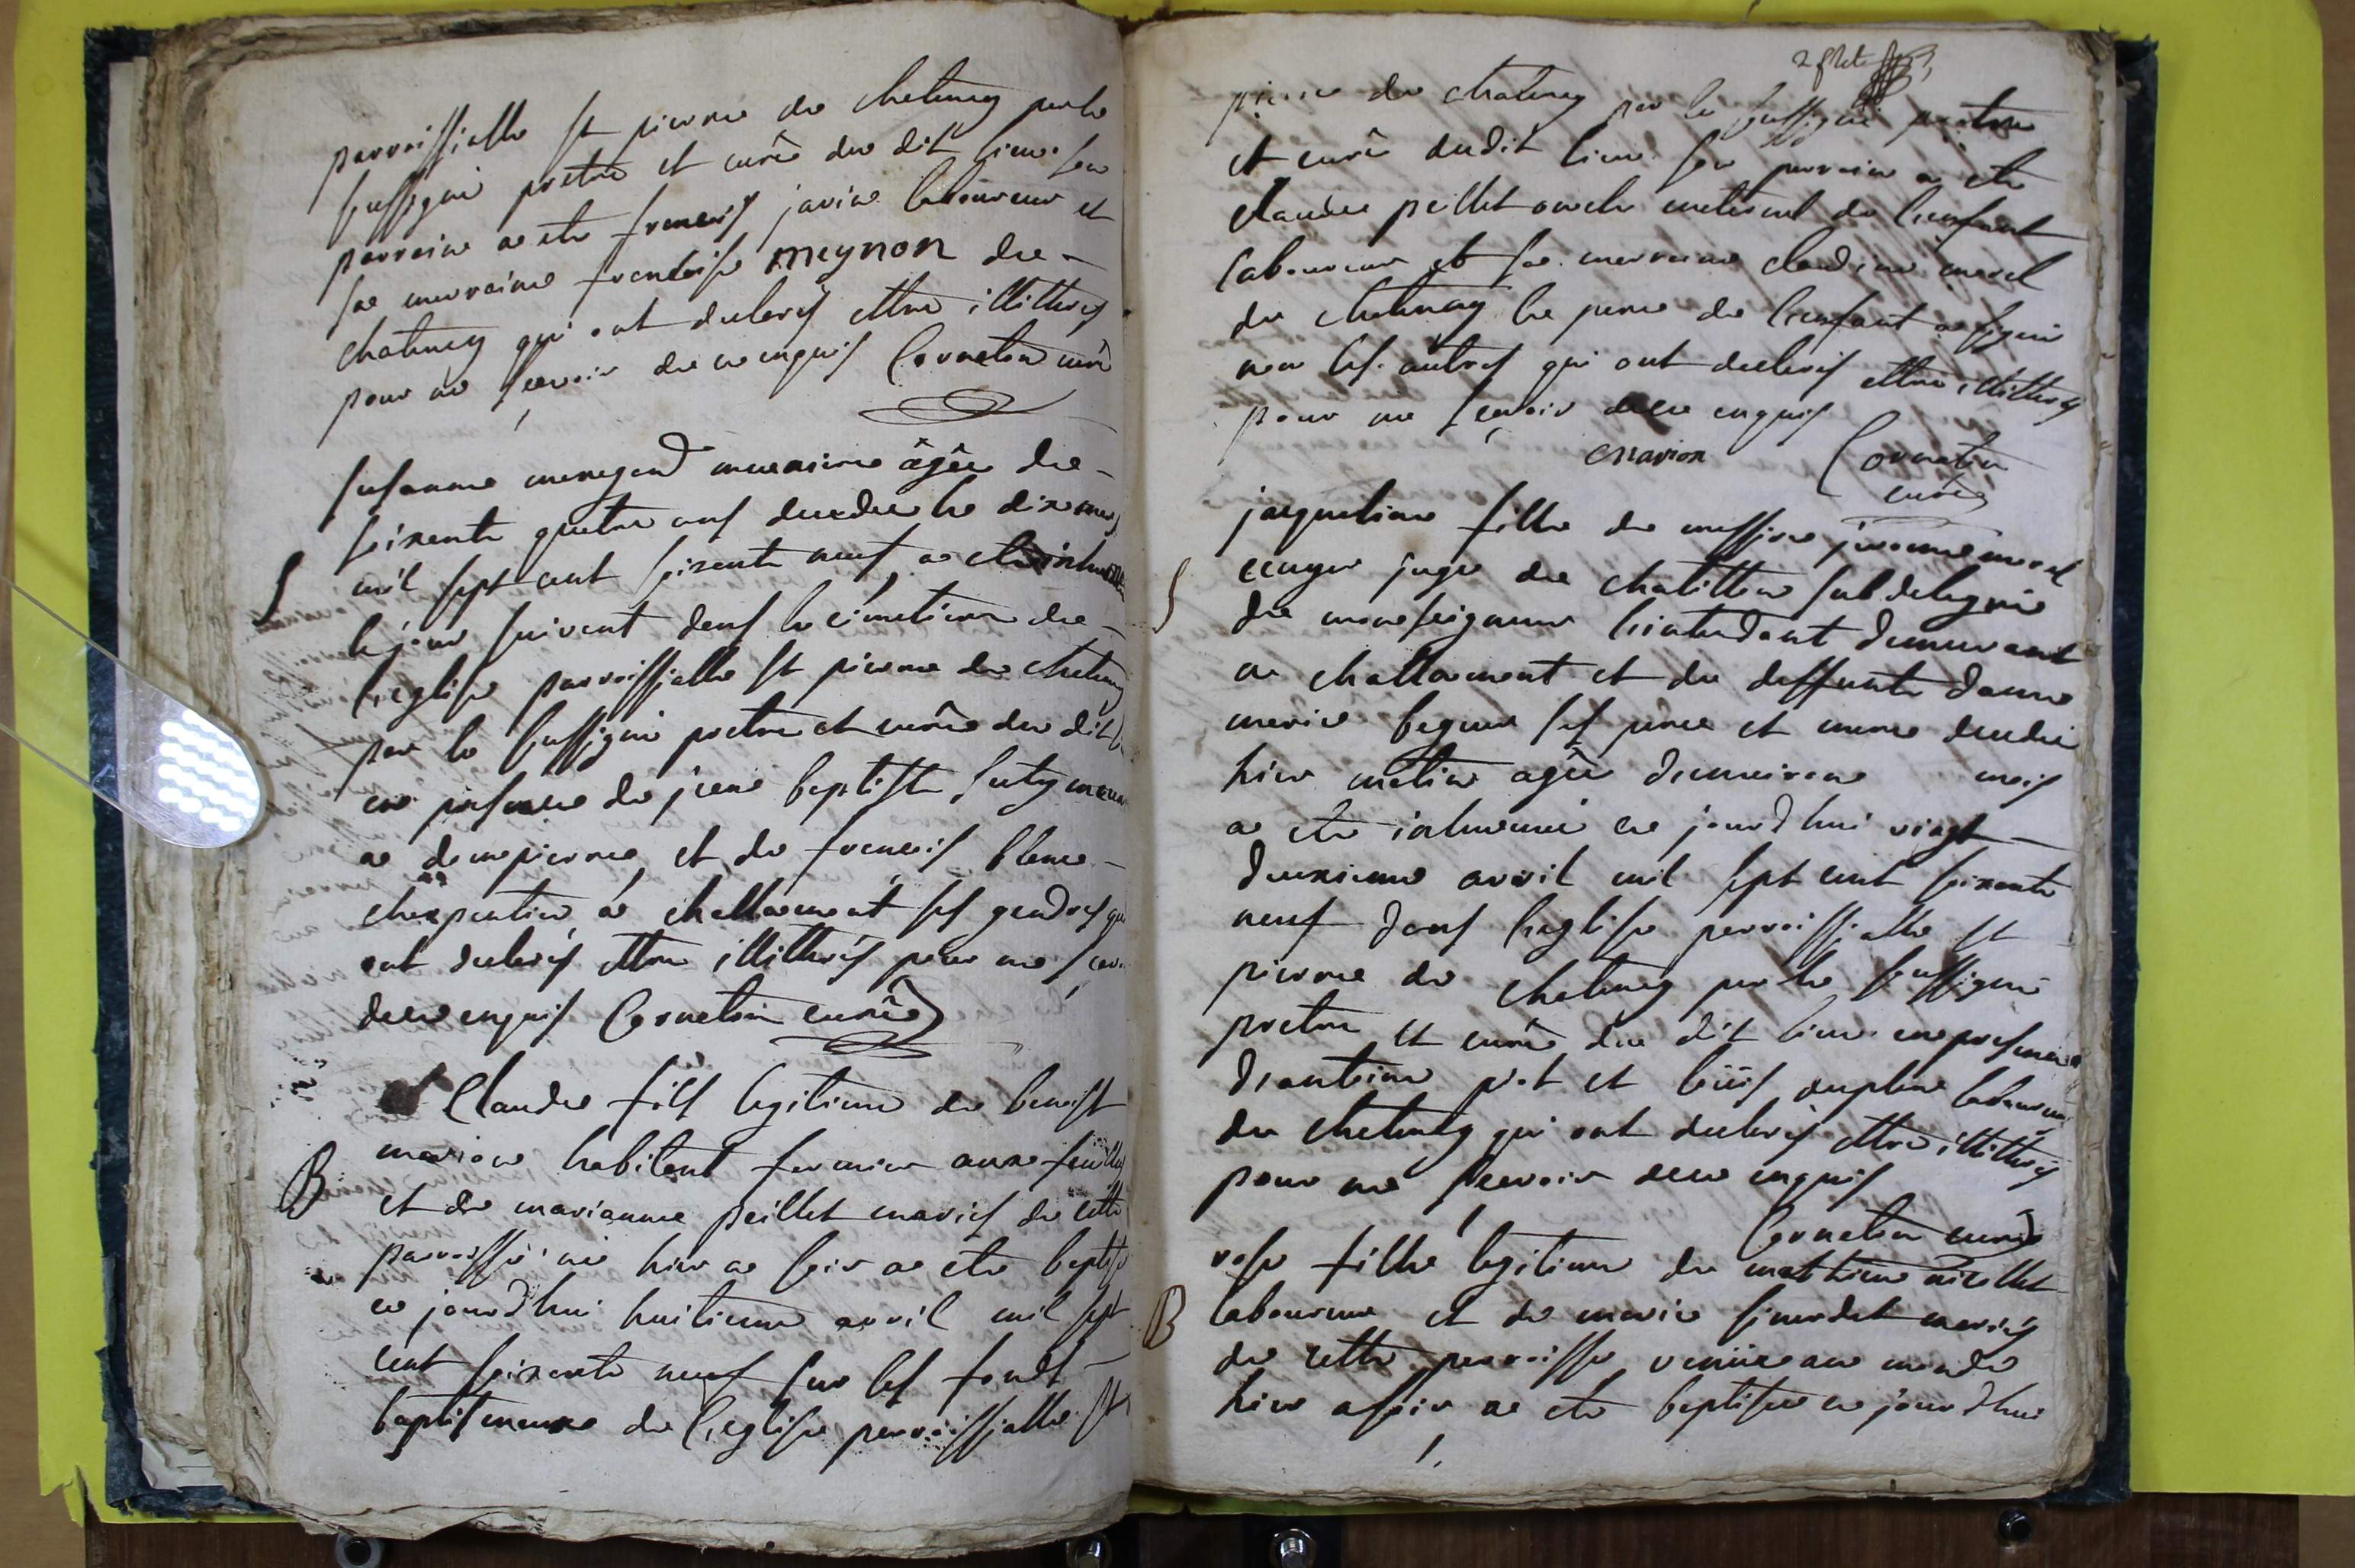 parroissialle st pierre de chatenay par le
soussigné pretre et curé du dit lieu. son
parrein a ete francois janin laboureur et
sa marraine francoise meynon de
chatenay qui ont declarés ettre illitterés
pour ne scavoir de ce enquis Cornaton curé
susanne mengand âgée de
soixante quatre ans decedee le dix mars
mil sept cent soixante neuf a ete inhumée
le jour suivant dans le cimetiere de
l'eglise parroissialle st pierre de chatenay
par le soussigné pretre et curé du dit
en presence de jean baptiste
a dompierre et de francois blanc
charpentier a challamont ses gendres qui
ont declarés ettre illitterés pour ne scavoir
de ce enquis Cornaton curé
S
Claude fils legitime de benoist
marion habitant fermier aux feuilles
et de marianne peillet mariés de cette
parroisse né hier a soir a ete baptisé
ce jourd'hui huitieme avril mil sept
cent soixante neuf sur les fonds
baptismeaux de l'eglise parroissialle st
B
pierre de chatenay par le soussigné pretre
et curé dudit lieu. son parrain a ete
claude peillet oncle maternel de l'enfant
laboureur et sa marraine claudine morel
de chatenay le pere de l'enfant a signé
non les autres qui ont declarés ettre illitterés
pour ne scavoir de ce enquis
marion Cornaton
curé
jacqueline fille de messire morel
ecuyer juge de chatillon subdelegué
de monseigneur l'intendant demeurant
a challamont et de deffunte dame
marie ses pere et mere decedée
hier matin agée d'environ mois
a ete inhumée ce jourd'hui vingt
deuxieme avril mil sept cent soixante
neuf dans l'eglise parroissialle st
pierre de chatenay par le soussigné
pretre et curé du dit lieu en presence
d'antoine et laboureurs
de chatenay qui ont declarés ettre illitterés
pour ne scavoir de ce enquis
Cornaton curé
S
rose fille legitime de mathieu nicollet
laboureur et de marie mariés
de cette parroisse venüe au monde
hier a soir a ete baptisée ce jourd'hui
B